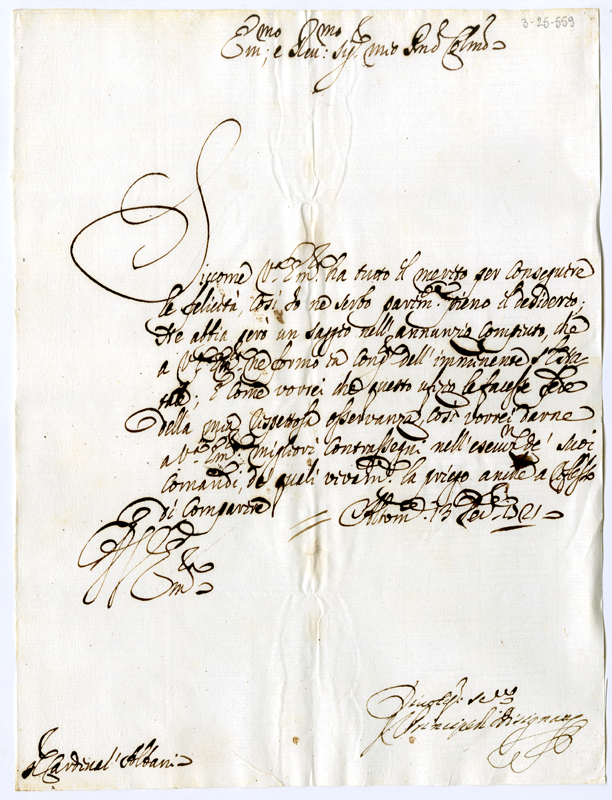 3-25-559
Em.mo e Reu.mo Sig.r mio Pnd Colmo
Siccome V.a Em.a ha tutto il merito per conseguire
le felicità, così Io ne serbo parim.te pieno il desiderio;
Ne abbia però un saggio nell'annunzio compiuto, che
a V.a Em.a ne formo in cong.a dell'imminente S.to Nata
tale; E come vorrei che questo uizo le facesse fede
della mia rispettosa osseruanza, così vorrei darne
a V.a Em.a migliori contrassegni nell'esecuz.ne de' suoi
comandi, de quali vivam.te la priego anche a
di comparire Altom. 13 1721
Em.a
Diuotis. ser.e
Principe di Bisignano
S.r Cardinal' Albani